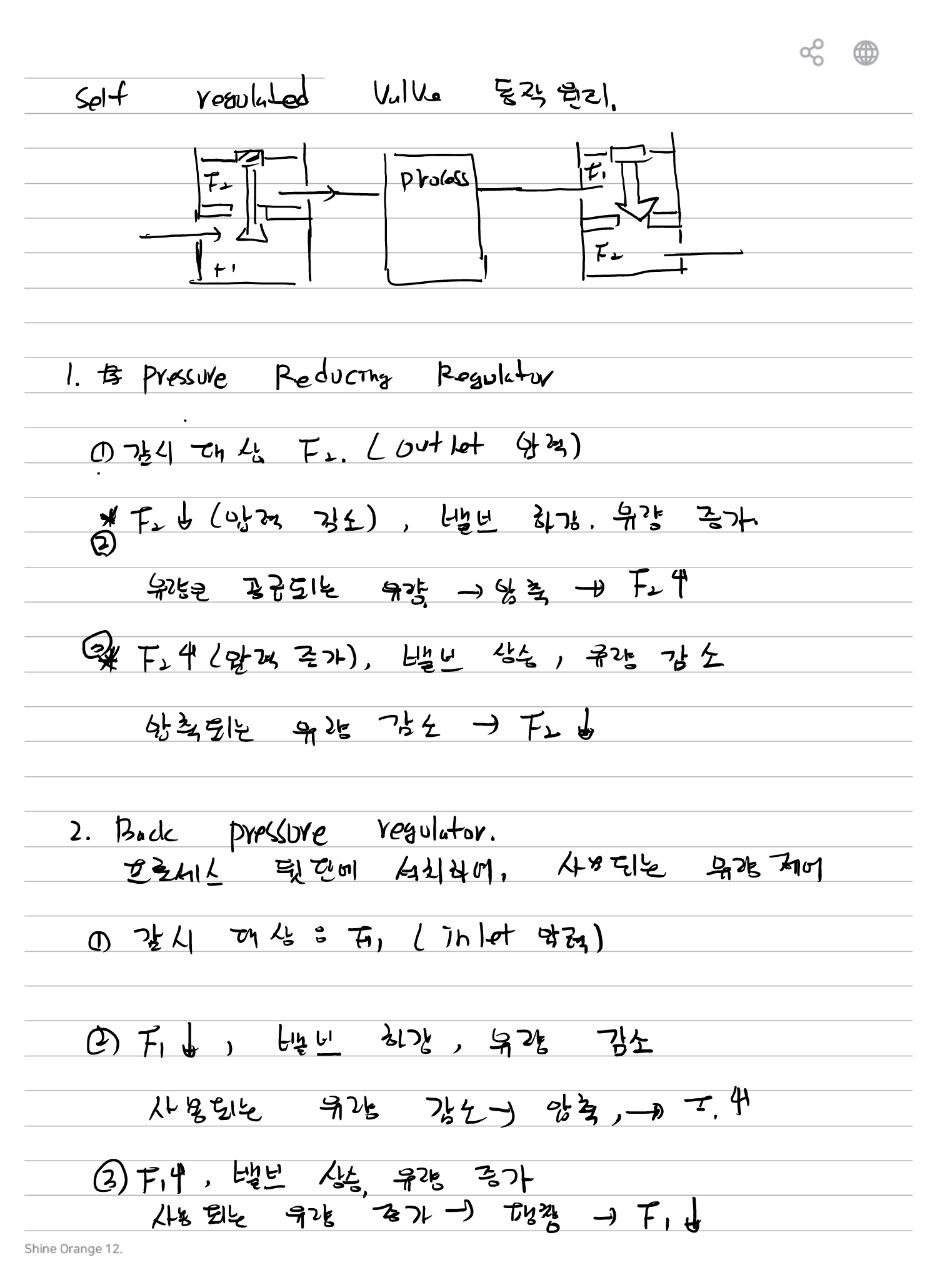 Self regulated Valve 동작 원리.
F2
process
F1
F1
F2
1. Pressure Reducing Regulator
① 감시 대상 F2. (outlet 압력)
* F2 ↓ (압력 감소), 밸브 하강. 유량 증가.
②
유량은 공급되는 유량. → 압축 → F2 ↑
③* F2 ↑ (압력 증가), 밸브 상승, 유량 감소
압축되는 유량 감소 → F2 ↓
2. Back pressure regulator.
프로세스 뒷단에 설치하여, 사용되는 유량 제어
① 감시 대상은 F1 (inlet 압력)
② F1 ↓, 밸브 하강, 유량 감소
사용되는 유량 감소 → 압축, → F1 ↑
③ F1 ↑, 밸브 상승, 유량 증가
사용되는 유량 증가 → 팽창 → F1 ↓
Shine Orange 12.